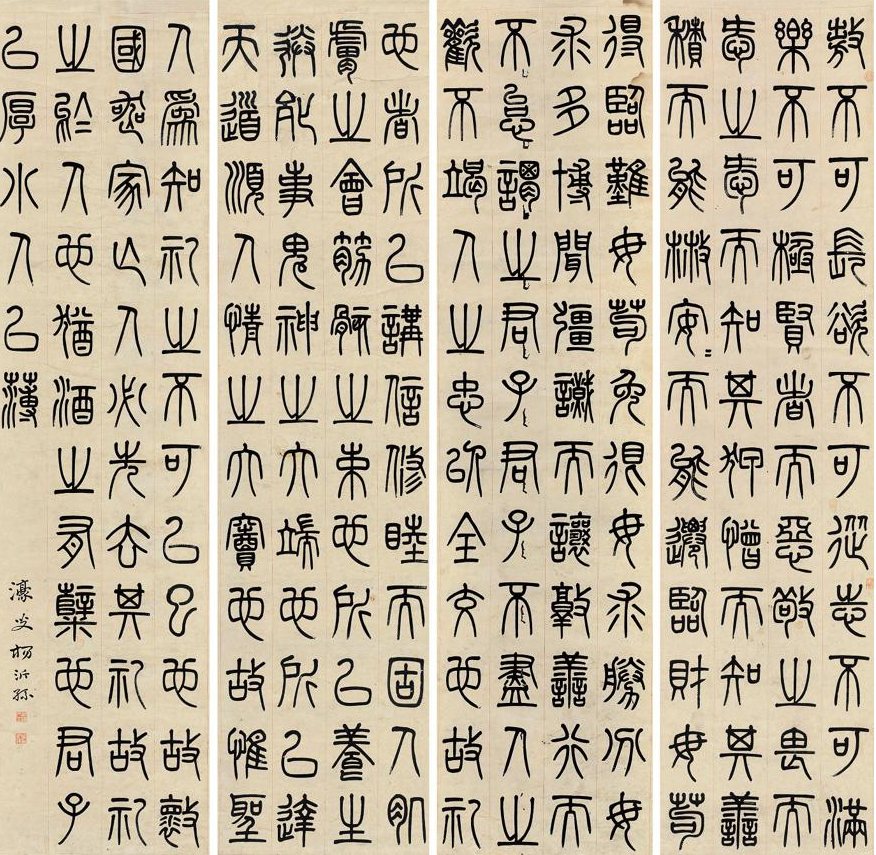 敖不可長欲不可從志不可滿
樂不可極賢者而惡敬之畏而
愛之愛而知其狎憎而知其善
積而能散安安而能遷臨財毋苟
得臨難毋苟免很毋求勝分毋
求多博聞彊識而讓敦善行而
不怠謂之君子君子不盡人之
歡不竭人之忠以全交也故礼
也者所以講信修睦而固人肌
膚之會筋骸之束也所以養生
送死事鬼神之大端也所以達
天道順人情之大竇也故惟聖
人爲知礼之不可以已也故壞
國喪家亡人必先去其礼故礼
之於人也猶酒之有櫱也君子
以厚小人以薄
濠叟楊沂孫